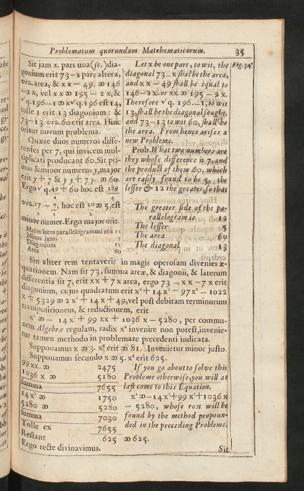 Problematum quorundam Mathematicorum. 35
Sit jam x. pars una (sc.) dia-
gonium erit 73 – x pars altera,
area, & xx – 49. ꝏ 146
vel xx ꝏ 195 – 2x, &
√q. 196 – 1 ꝏ x √q. 196 est 14,
1 erit 13 diagonium: &
73 – 13 60 est area. Hinc
oritur novum problema.
Quære duos numeros diffe-
rentes per 7, qui invicem mul-
tiplicati producant 60. Sit pri-
mus seu minor numerus y, major
erit y + 7 & yy + 7y. ꝏ 60
Ergo √q 49 + 60 hoc est 289
hoc est 10 ꝏ 5, est
minor numer. Ergo major erit.
Majus latus parallelogrammi erit 12
Minus latus 5
Diagonium 13
60
Let x be one part, to wit, the
diagonal 73 – x shal be the area,
and xx – 49 shall be equal to
146 – 2x. or xx ꝏ 195 – 2x.
Therefore √q. 196 – 1, to wit
13, shall be the diagonal sought,
and 73 – 13 to wit 60, shall be
the area. From hence ariseth a
new Probleme.
Prob. What two numbers are
they whose difference is 7, and
the product of them 60, which
are easily found to be 5, the
lesser & 12 the greater, so that
The greater side of the pa-
rallelogram is 12
The lesser 5
The area 60
The diagonal 13
Fig. 34
Sin aliter rem tentaveris in magis operosam divenies æ-
quationem. Nam sit 73, summa areæ, & diagonii, & laterum
differentia sit 7, erit xx + 7x area, ergo 73 – xx – 7x erit
diagonium, cujus quadratum erit x⁴ + 14x³ – 97x² – 1022
x + 5329 ꝏ 2x² + 14x + 49, vel post debitam terminorum
transpositionem, & reductionem, erit
x⁴ ꝏ – 14x³ + 99xx + 1036x – 5280, per commu-
nem Algebræ regulam, radix x⁴ invenire non potest, invenie-
tur tamen methodo in problemate precedenti indicata.
Supponamus x ꝏ 3. x⁴ erit ꝏ 81. Invenietur minor justo.
Supponamus secundo x ꝏ 5. x⁴ erit 625.
99 xx. ꝏ 2475
1036 x ꝏ 5180
Summa 7655
14 x³ ꝏ 1750
5280 ꝏ 5280
Summa 7030
Tolle ex 7655
Restant 625
Ergo recte divinavimus.
If you go about to solve this
Probleme otherwise, you will at
last come to this Equation.
x⁴ ꝏ – 14x³ + 99x + 1036x
– 5280, whose root will be
found by the method propoun-
ded in the preceding Probleme.
ꝏ 625.
Sit